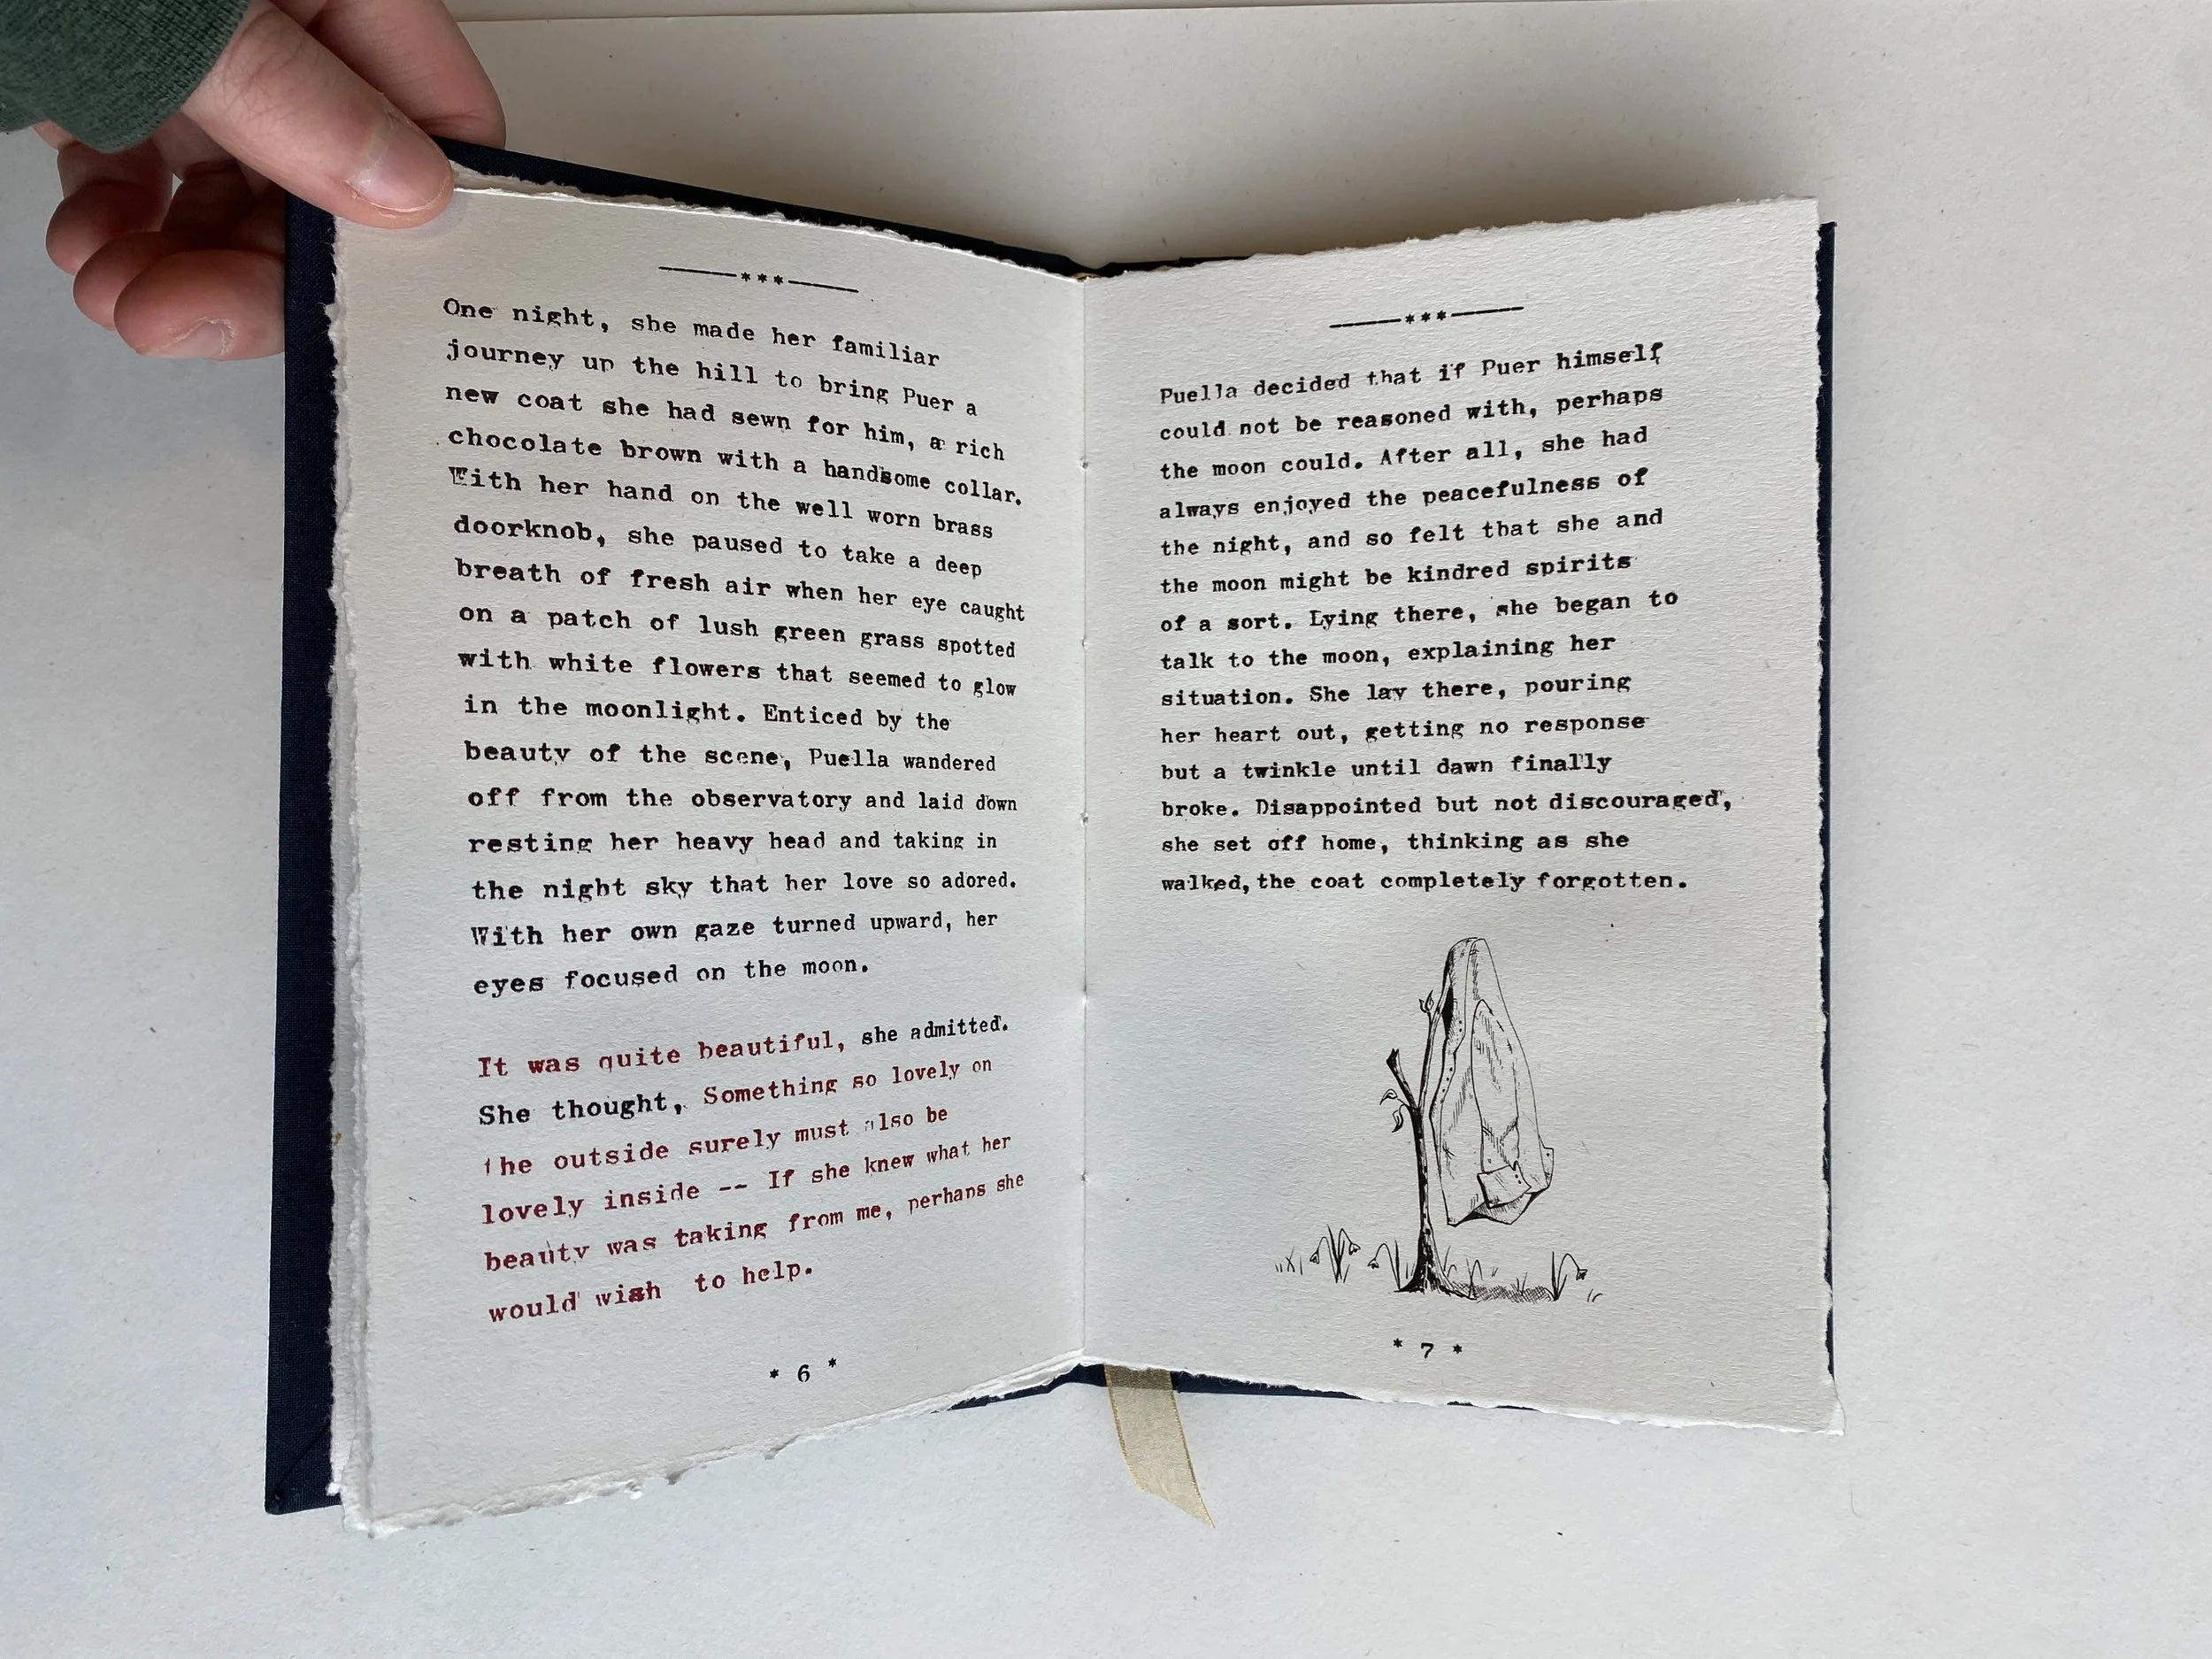 ———***———
One night, she made her familiar
journey up the hill to bring Puer a
new coat she had sewn for him, a rich
chocolate brown with a handsome collar.
With her hand on the well worn brass
doorknob, she paused to take a deep
breath of fresh air when her eye caught
on a patch of lush green grass spotted
with white flowers that seemed to glow
in the moonlight. Enticed by the
beauty of the scene, Puella wandered
off from the observatory and laid down
resting her heavy head and taking in
the night sky that her love so adored.
With her own gaze turned upward, her
eyes focused on the moon.
It was quite beautiful, she admitted.
She thought, Something so lovely on
the outside surely must also be
lovely inside -- If she knew what her
beauty was taking from me, perhaps she
would wish to help.
* 6 *
———***———
Puella decided that if Puer himself
could not be reasoned with, perhaps
the moon could. After all, she had
always enjoyed the peacefulness of
the night, and so felt that she and
the moon might be kindred spirits
of a sort. Lying there, she began to
talk to the moon, explaining her
situation. She lay there, pouring
her heart out, getting no response
but a twinkle until dawn finally
broke. Disappointed but not discouraged,
she set off home, thinking as she
walked, the coat completely forgotten.
* 7 *